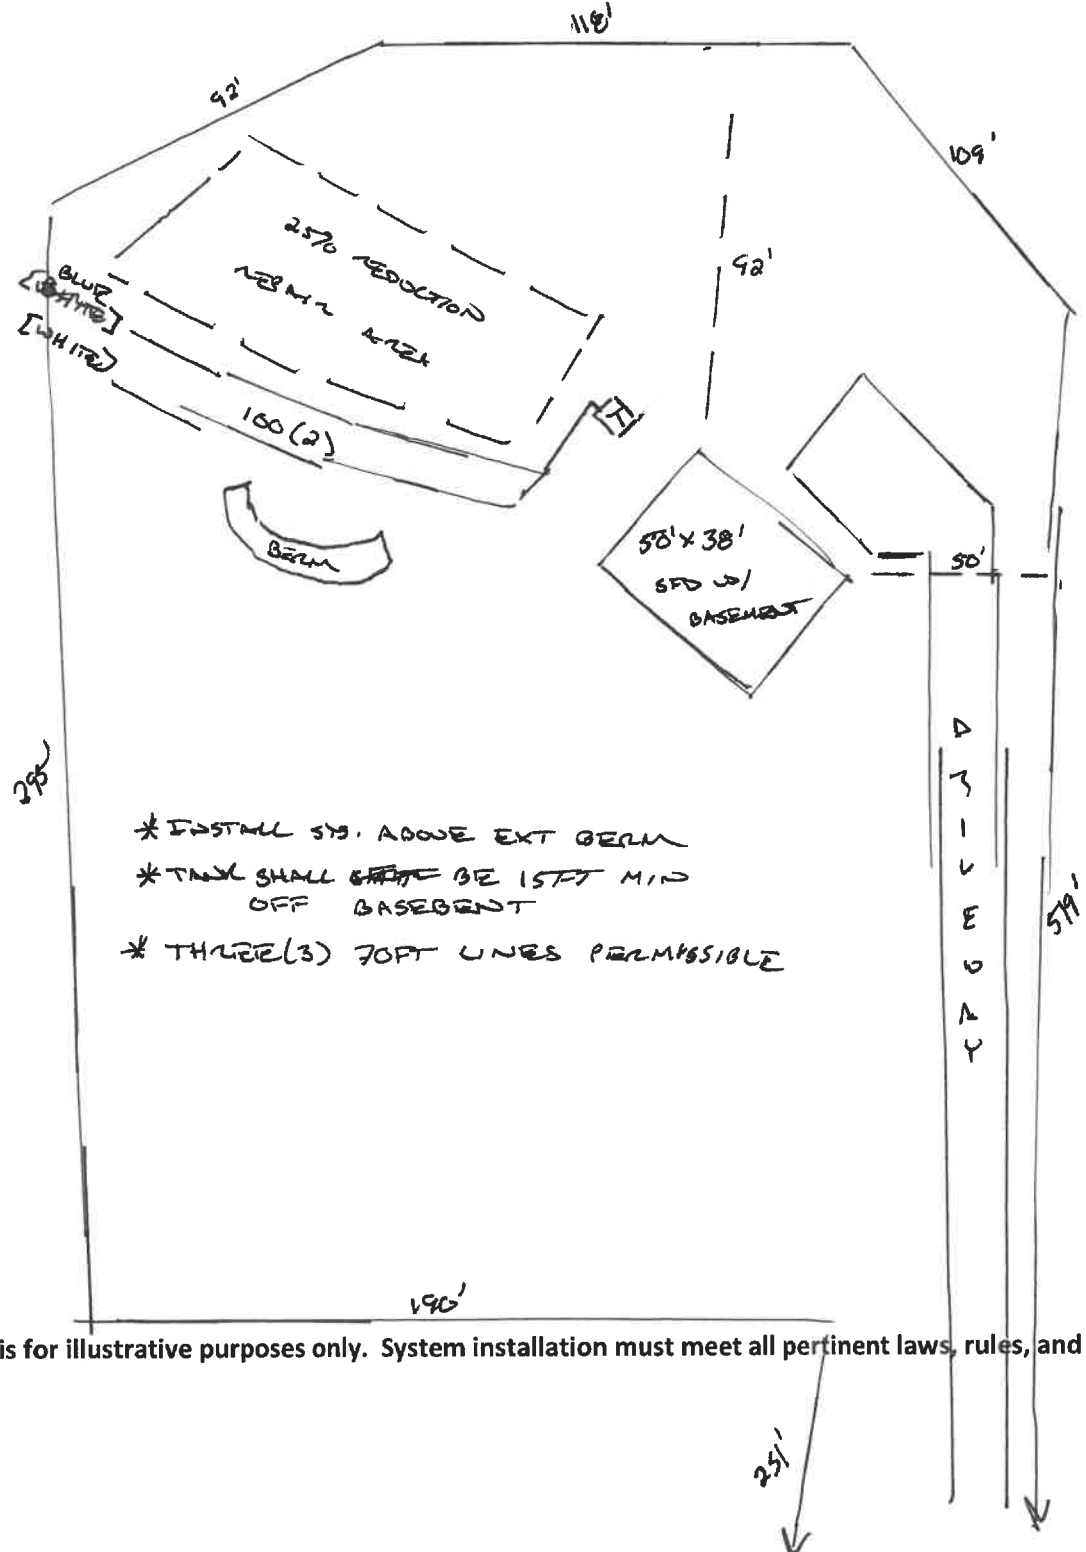 118'
92'
109'
25% REDUCTION
REPAIR AREA
92'
BLUE
[WHITE]
[WHITE]
100(2)
BERM
50' X 38'
SFD W/
BASEMENT
50'
DRIVEWAY
295'
579'
* INSTALL SYS. ABOVE EXT BERM
* TANK SHALL BE 15FT MIN
OFF BASEBENT
* THREE(3) 70FT LINES PERMISSIBLE
190'
is for illustrative purposes only. System installation must meet all pertinent laws, rules, and
251'